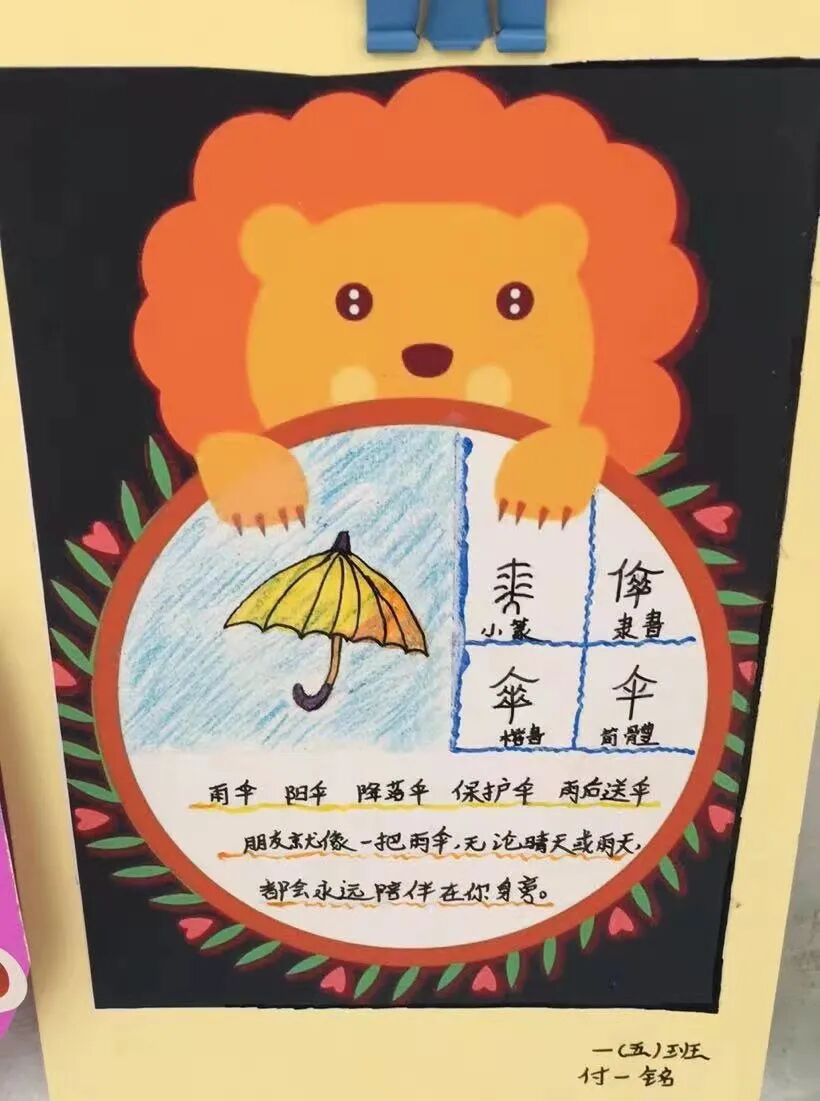 小篆 隶書
傘 伞
楷書 简體
雨伞 阳伞 降落伞 保护伞 雨后送伞
朋友就像一把雨伞,无论晴天或雨天,
都会永远陪伴在你身旁。
一(五)班
付一铭